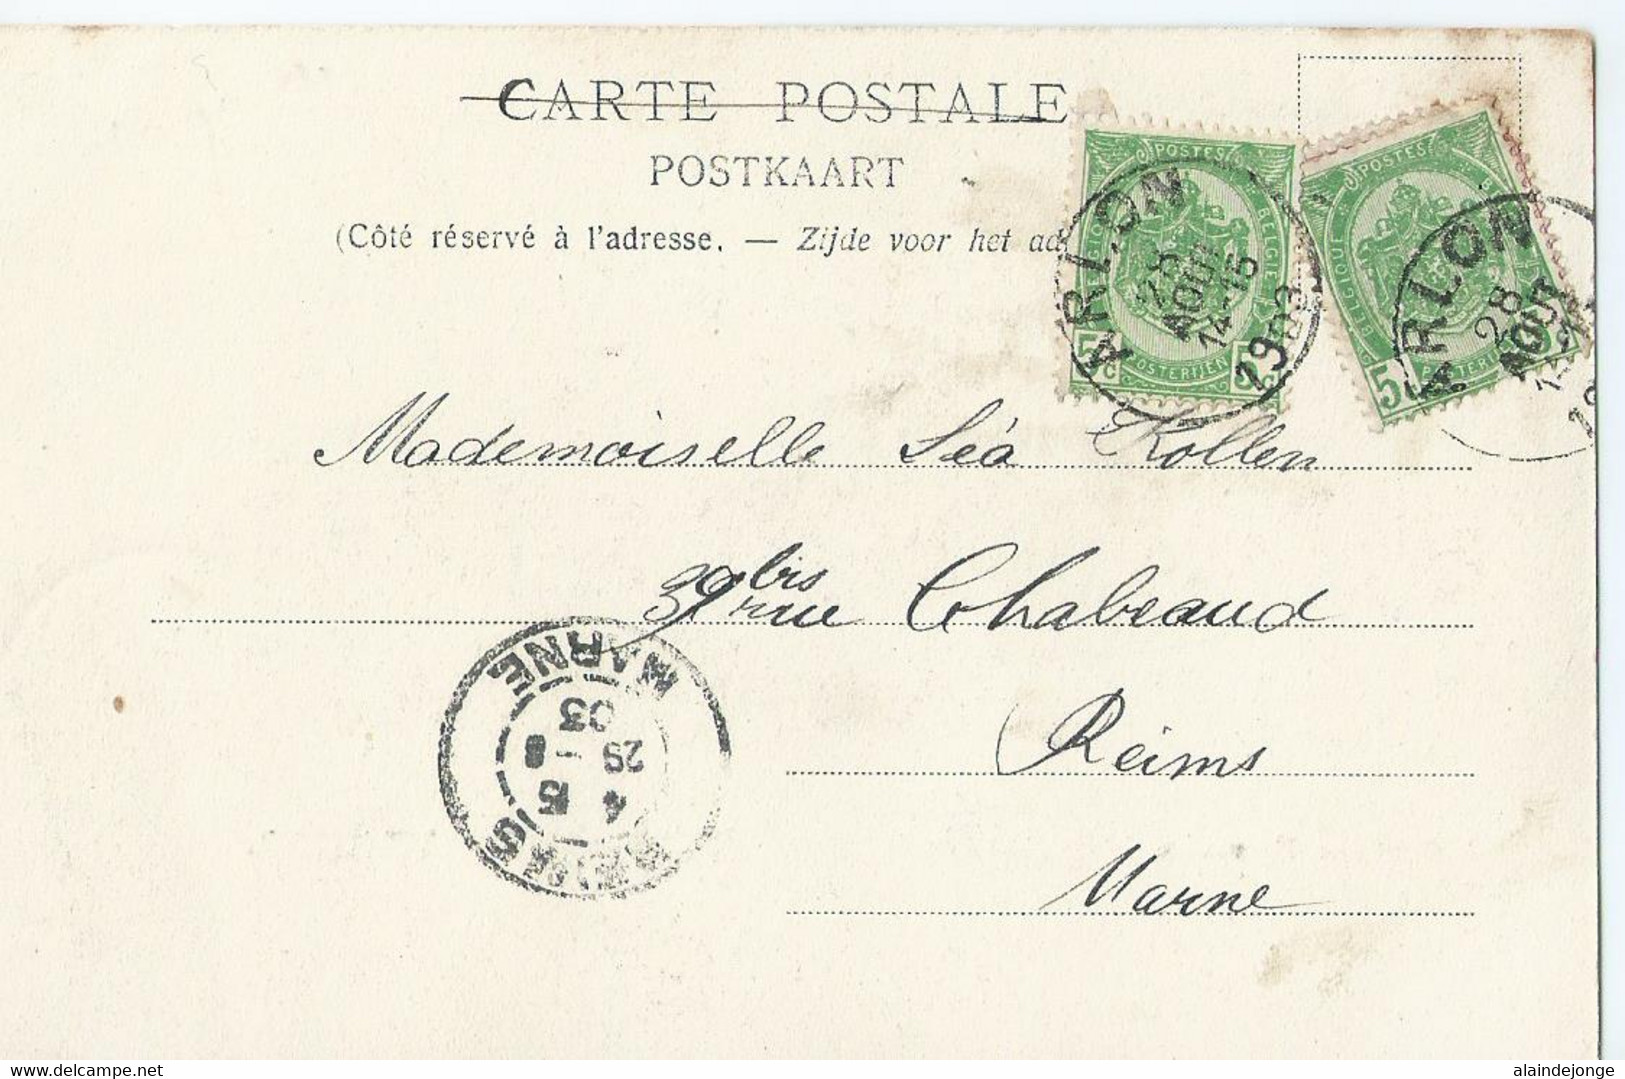 CARTE POSTALE
POSTKAART
(Côté réservé à l'adresse. — Zijde voor het ad
POSTES
BELGIQUE
BELGIE
5c
POSTERIJEN
5c
ARLON
28
AOUT
14-15
1903
POSTES
BELGIQUE
5
POSTERIJEN
5
ARLON
28
AOUT
Mademoiselle Léa Kollen
39 bis rue Chabeaud
Reims
Marne
REIMS
4 5
29 - 8
03
MARNE
Delcampe.net
alaindejonge